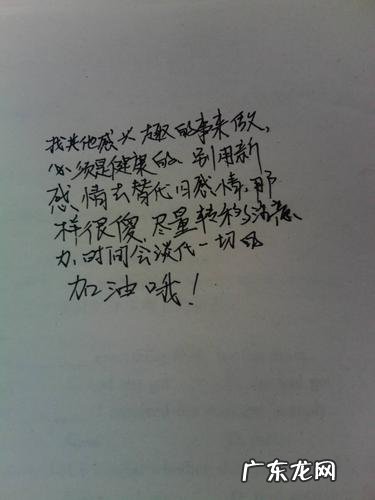 找其他感兴趣的事来做,
必须是健康的、别用新
感情去替代旧感情,那
样很傻,尽量转移注意
力,时间会淡化一切的
加油哦!
广东龙网